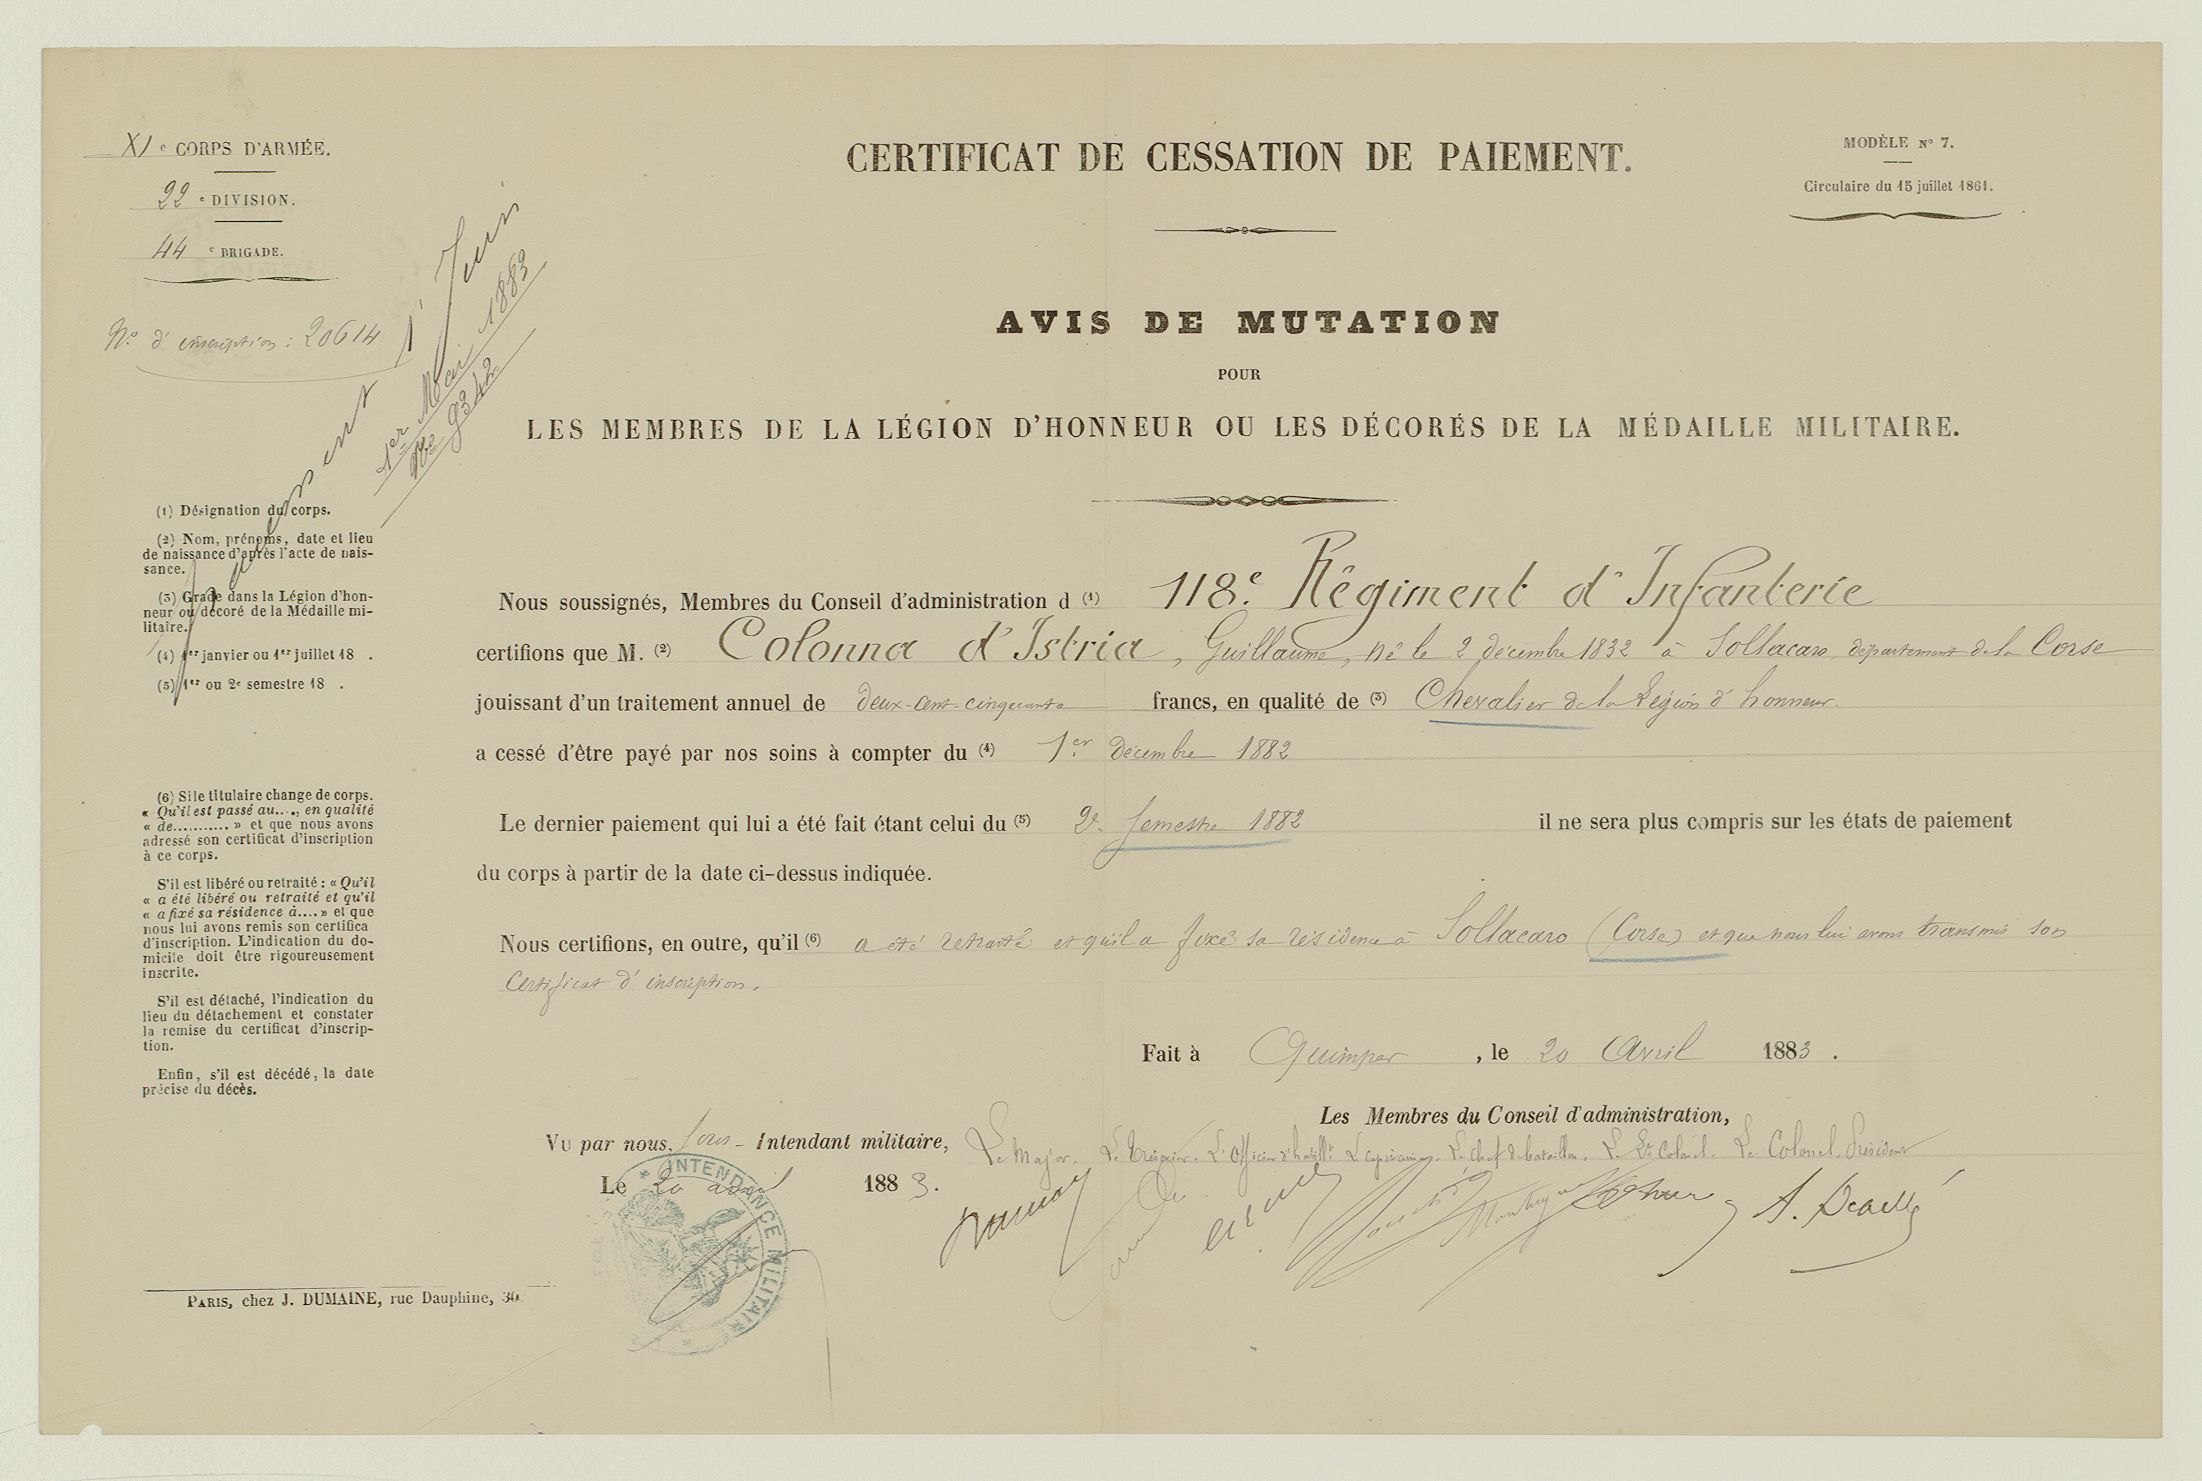 XI e CORPS D'ARMÉE.
22 e DIVISION.
44 e BRIGADE.
No d'inscription : 20614
1er Mai 1883
No 9342
Juin
CERTIFICAT DE CESSATION DE PAIEMENT.
MODÈLE No 7.
Circulaire du 15 juillet 1861.
AVIS DE MUTATION
POUR
LES MEMBRES DE LA LÉGION D'HONNEUR OU LES DÉCORÉS DE LA MÉDAILLE MILITAIRE.
(1) Désignation du corps.
(2) Nom, prénoms, date et lieu
de naissance d'après l'acte de nais-
sance.
(3) Grade dans la Légion d'hon-
neur ou décoré de la Médaille mi-
litaire.
(4) 1er janvier ou 1er juillet 18 .
(5) 1er ou 2e semestre 18 .
(6) Si le titulaire change de corps.
« Qu'il est passé au...., en qualité
« de........... » et que nous avons
adressé son certificat d'inscription
à ce corps.
S'il est libéré ou retraité : « Qu'il
« a été libéré ou retraité et qu'il
« a fixé sa résidence à.... » et que
nous lui avons remis son certifica
d'inscription. L'indication du do-
micile doit être rigoureusement
inscrite.
S'il est détaché, l'indication du
lieu du détachement et constater
la remise du certificat d'inscrip-
tion.
Enfin, s'il est décédé, la date
précise du décès.
Nous soussignés, Membres du Conseil d'administration d (1) 118e. Régiment d'Infanterie
certifions que M. (2) Colonna d'Istria, Guillaume, né le 2 décembre 1832 à Sollacaro, département de la Corse
jouissant d'un traitement annuel de deux-cent-cinquante francs, en qualité de (3) Chevalier de la Légion d'honneur.
a cessé d'être payé par nos soins à compter du (4) 1er. décembre 1882
Le dernier paiement qui lui a été fait étant celui du (5) 2e. semestre 1882 il ne sera plus compris sur les états de paiement
du corps à partir de la date ci-dessus indiquée.
Nous certifions, en outre, qu'il (6) a été retraité et qu'il a fixé sa résidence à Sollacaro (Corse) et que nous lui avons transmis son
certificat d'inscription.
Fait à Quimper , le 20 Avril 1883 .
Les Membres du Conseil d'administration,
Vu par nous, Sous-Intendant militaire,
Le Major. Le Trésorier. L'Officier d'habillt. Le capitaine. Le chef de bataillon. Le Lt Colonel. Le Colonel Président
Le 20 avril 1883.
INTENDANCE MILITAIRE
PARIS, chez J. DUMAINE, rue Dauphine, 30